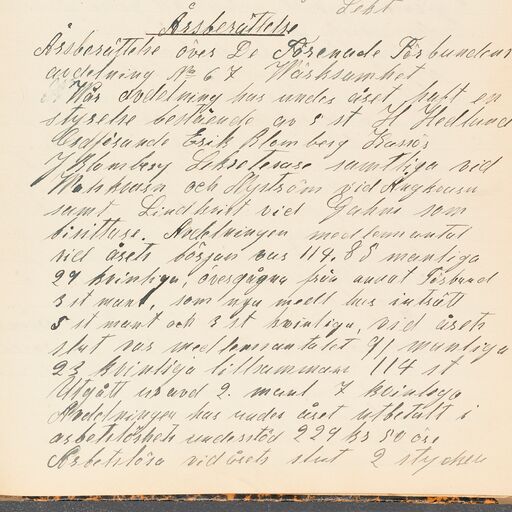 Sekt
Årsberättelse
Årsberättelse över De Förenade Förbundens
avdelning No 67 Värksamhet
Vår Avdelning har under året haft en
styrelse bestående av 5 st H Hedlund
Ordförande Erik Blomberg Kassör
J Blomberg Sekreterare samtliga vid
och Nyström vid Ångkvarn
samt Lindkvist vid Gahns som
bisittare. Avdelningen medlemmantal
vid årets början var 114. 85 manliga
29 kvinliga, övergågna från anat Förbund
3 st manl, som nya medl har inträtt
5 st manl och 3 st kvinliga, vid årets
slut var medlemsantalet 91 manliga
23 kvinliga tillsamman 114 st
Utgått ur avd 2. manl 7 kvinliga
Avdelningen har under året utbetalt i
arbetslöshets understöd 229 kr 50 öre
Arbetslösa vid årets slut 2 stycken